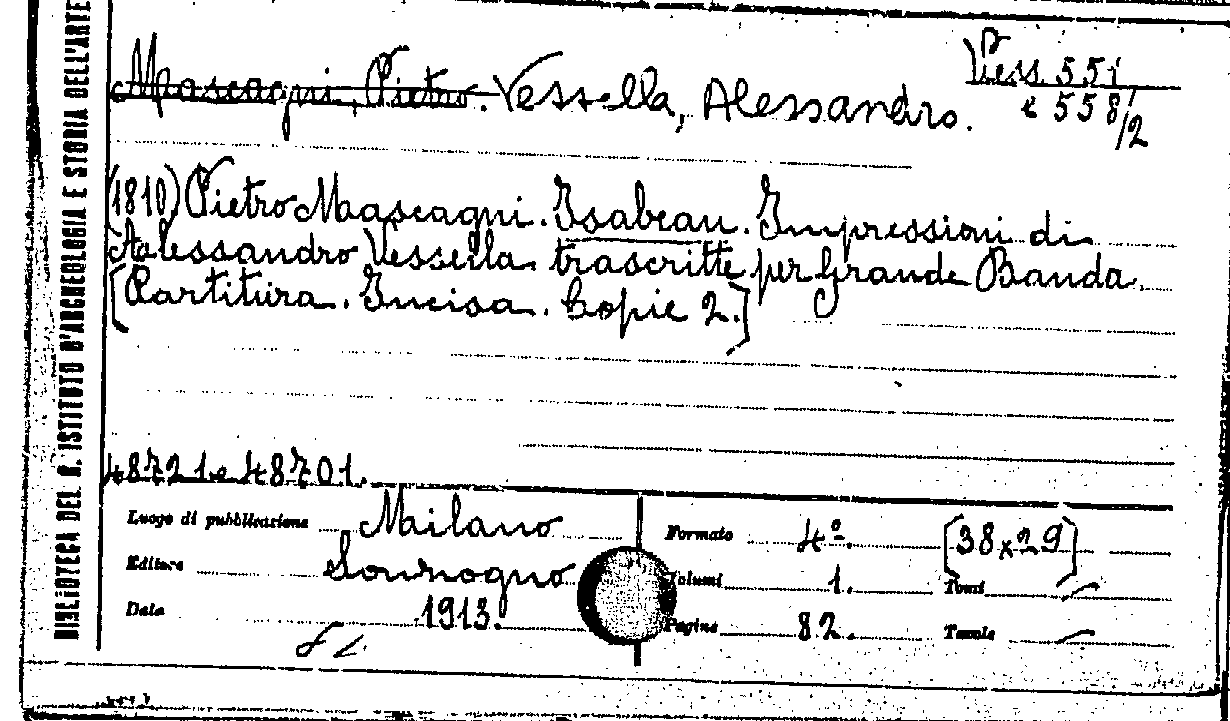 BIBLIOTECA DEL R. ISTITUTO D'ARCHEOLOGIA E STORIA DELL'ARTE
Mascagni, Pietro. Vessella, Alessandro.
Vess. 551
e 558/2
(1810) Pietro Mascagni. Isabeau. Impressioni di
Alessandro Vessella trascritte per Grande Banda.
[Partitura. Incisa. Copie 2.]
48721 e 48701.
Luogo di pubblicazione Milano
Editore Sonzogno
Data 1913.
Formato 4º. [38x29]
Volumi 1. Tomi —
Pagine 82. Tavole —